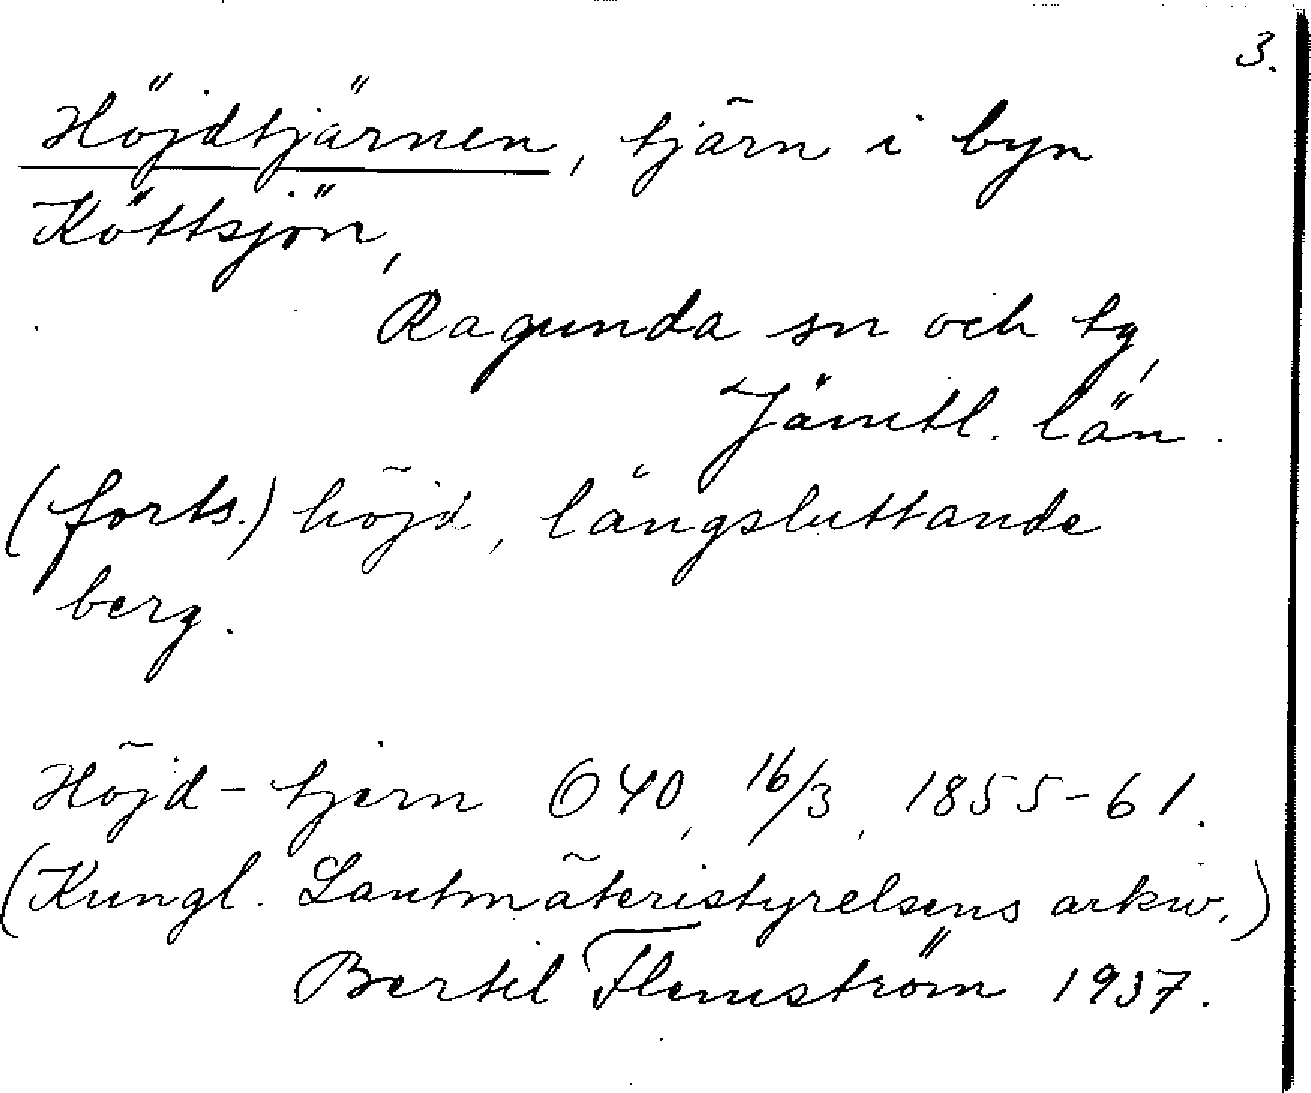 3.
Höjdtjärnen, tjärn i byn
Köttsjön,
Ragunda sn och tg,
Jämtl. län.
(forts.) höjd, långsluttande
berg.
Höjd-tjern O40, 16/3, 1855-61.
(Kungl. Lantmäteristyrelsens arkiv.)
Bertil Flemström 1937.